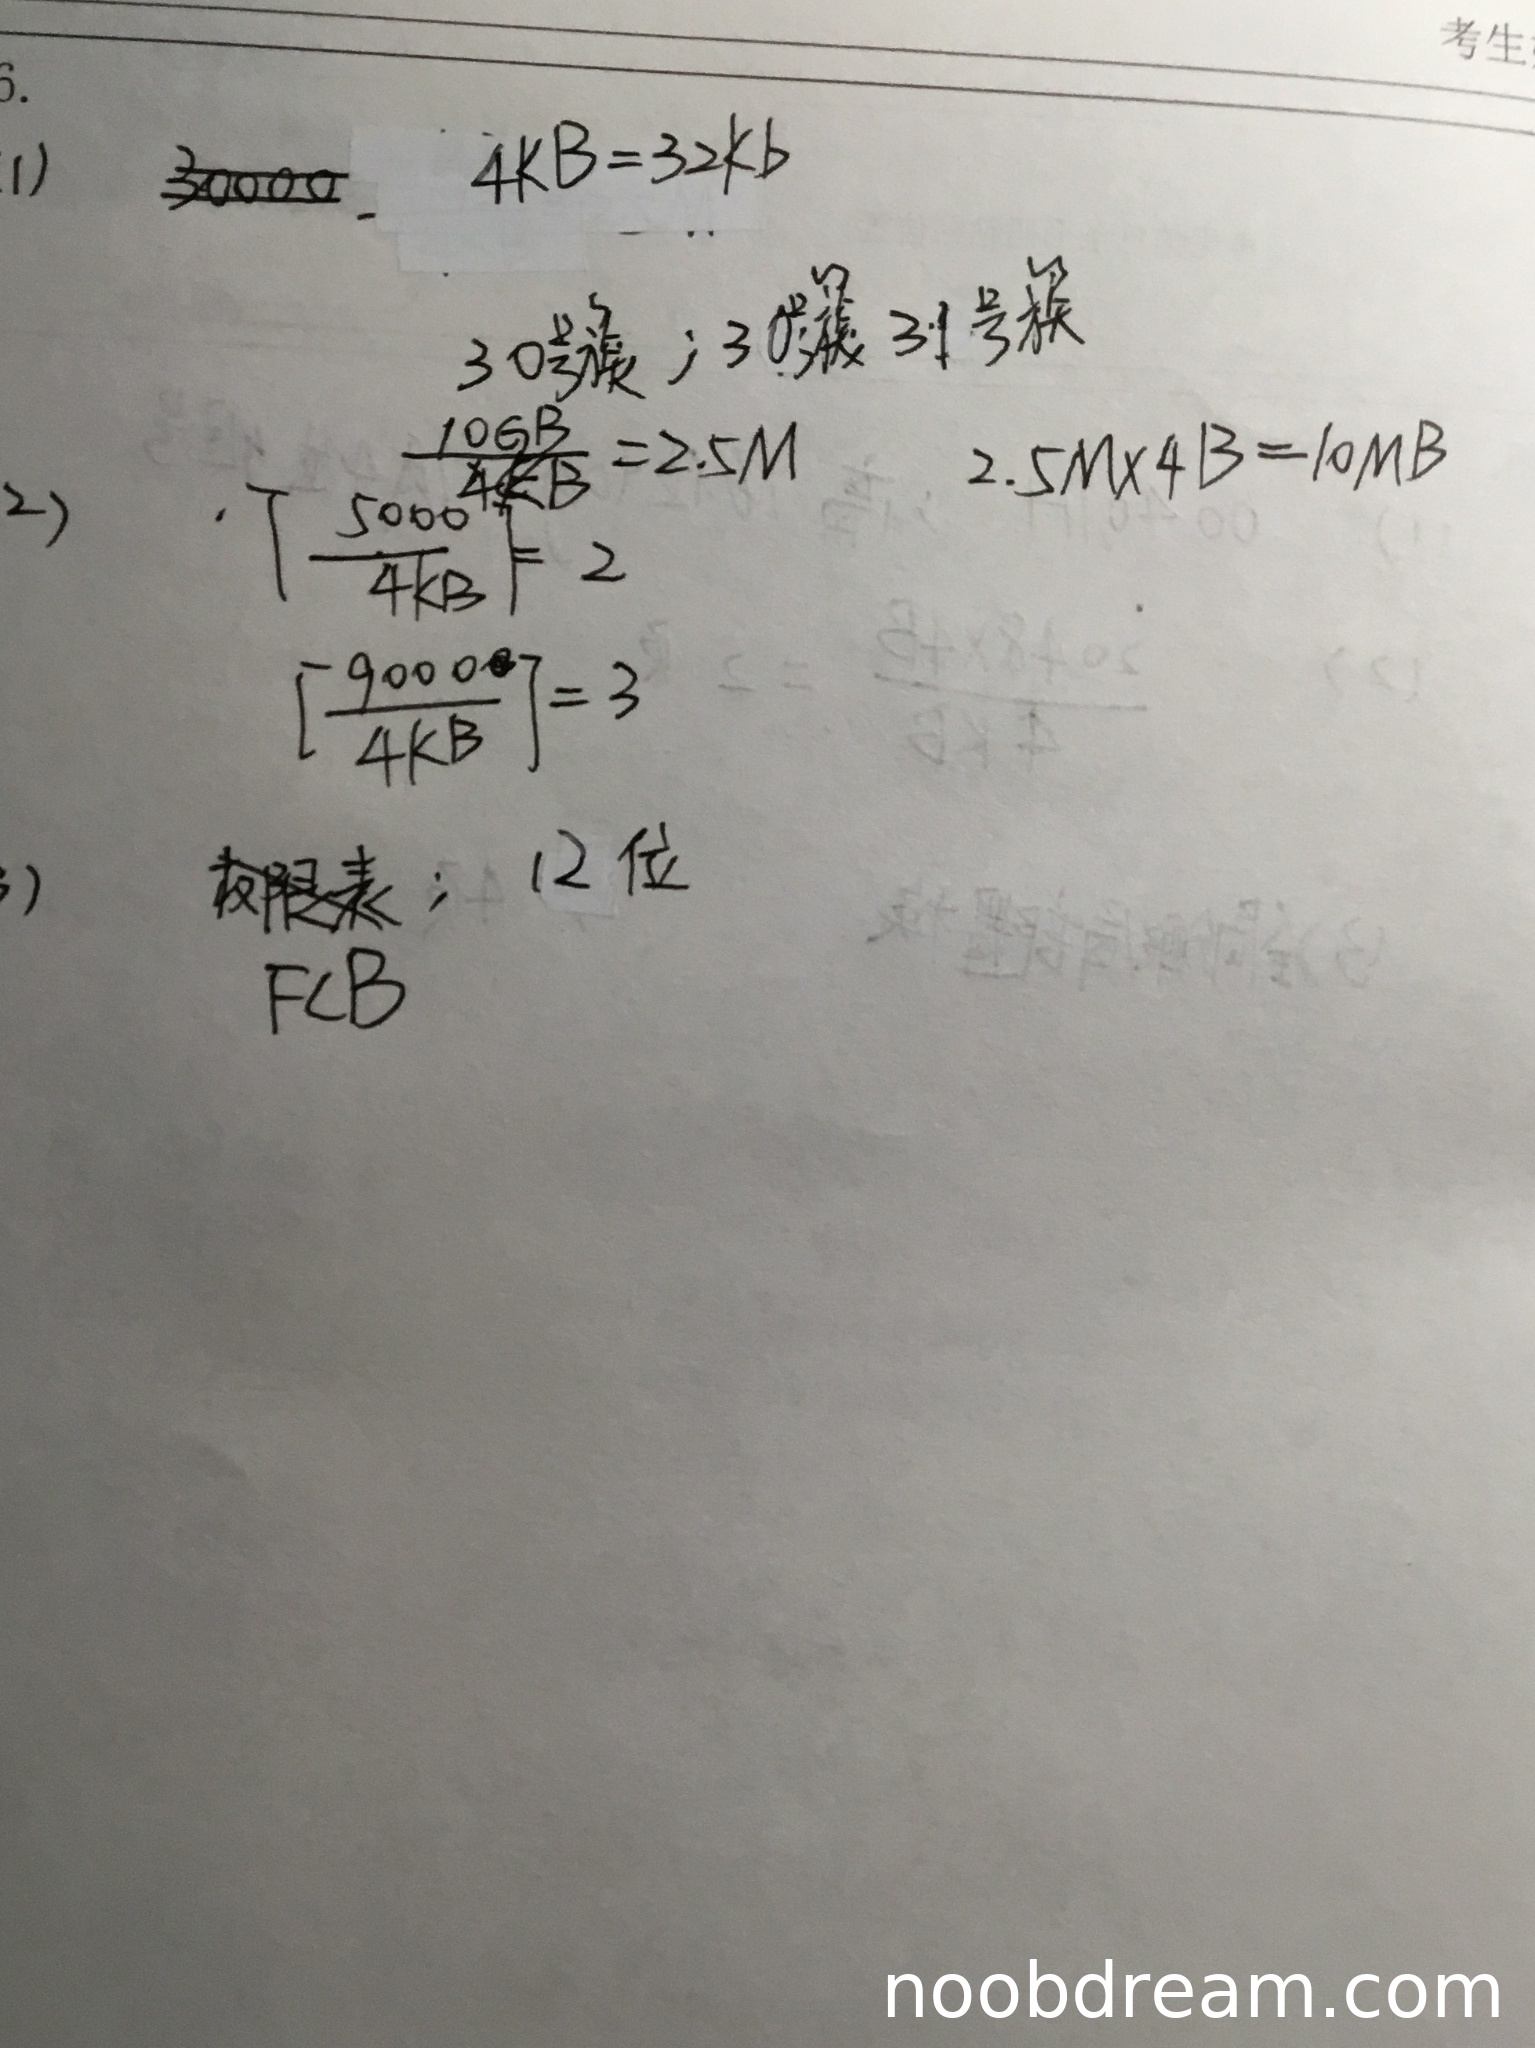 考生
6.
(1) 30000 4KB=32Kb
30号簇；30号簇 31号簇
10GB/4KB =2.5M 2.5M×4B=10MB
2) ⌈5000/4KB⌉= 2
⌈9000/4KB⌉=3
3) 权限表； 12位
FCB
noobdream.com